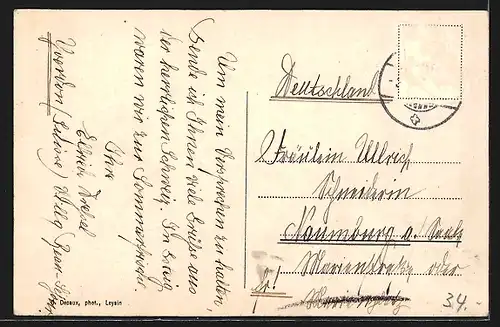 Um mein Versprechen zu halten,
sende ich Ihnen viele Grüße aus
der herrlichen Schweiz. In
waren wir zur Sommerfrische.
Ihre
Elfriede
Yverdon (Suisse) Villa
Deutschland
Fräulein Ullrich
Schneiderin
Naumburg a./Saale
Marienstraße oder
Dénaux, phot., Leysin
34.-